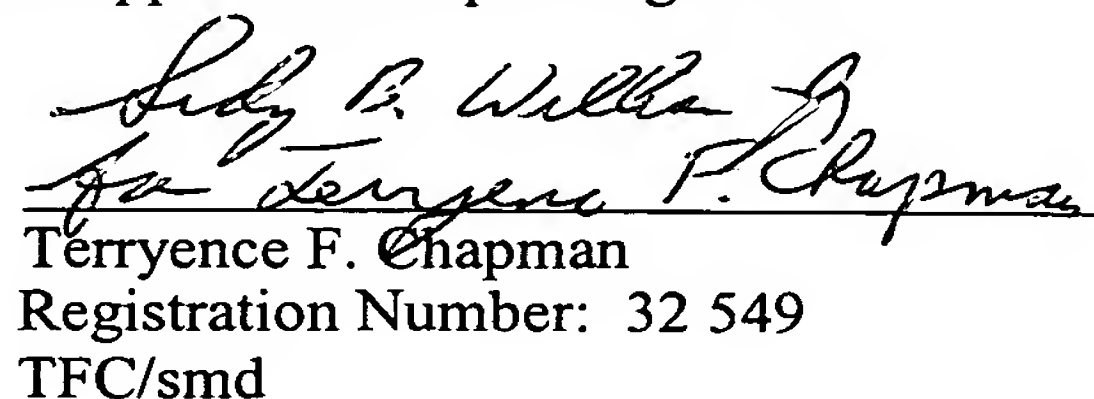 Sidney B. Williams Jr
for Terryence P. Chapman
Terryence F. Chapman
Registration Number: 32 549
TFC/smd